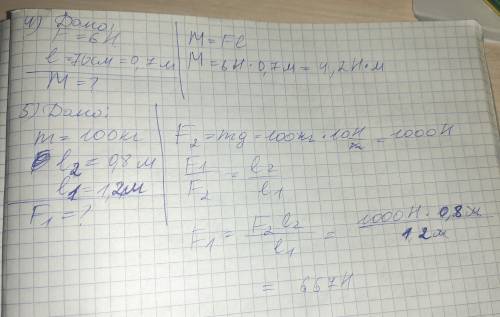 4) Дано:
F = 6Н
l = 70см = 0,7м
M = ?
M = Fl
M = 6Н · 0,7м = 4,2Н·м
5) Дано:
m = 100кг
l₂ = 0,8м
l₁ = 1,2м
F₁ = ?
F₂ = mg = 100кг · 10Н/кг = 1000Н
F₁/F₂ = l₂/l₁
F₁ = F₂ l₂/l₁ = 1000Н · 0,8м/1,2м
= 657Н